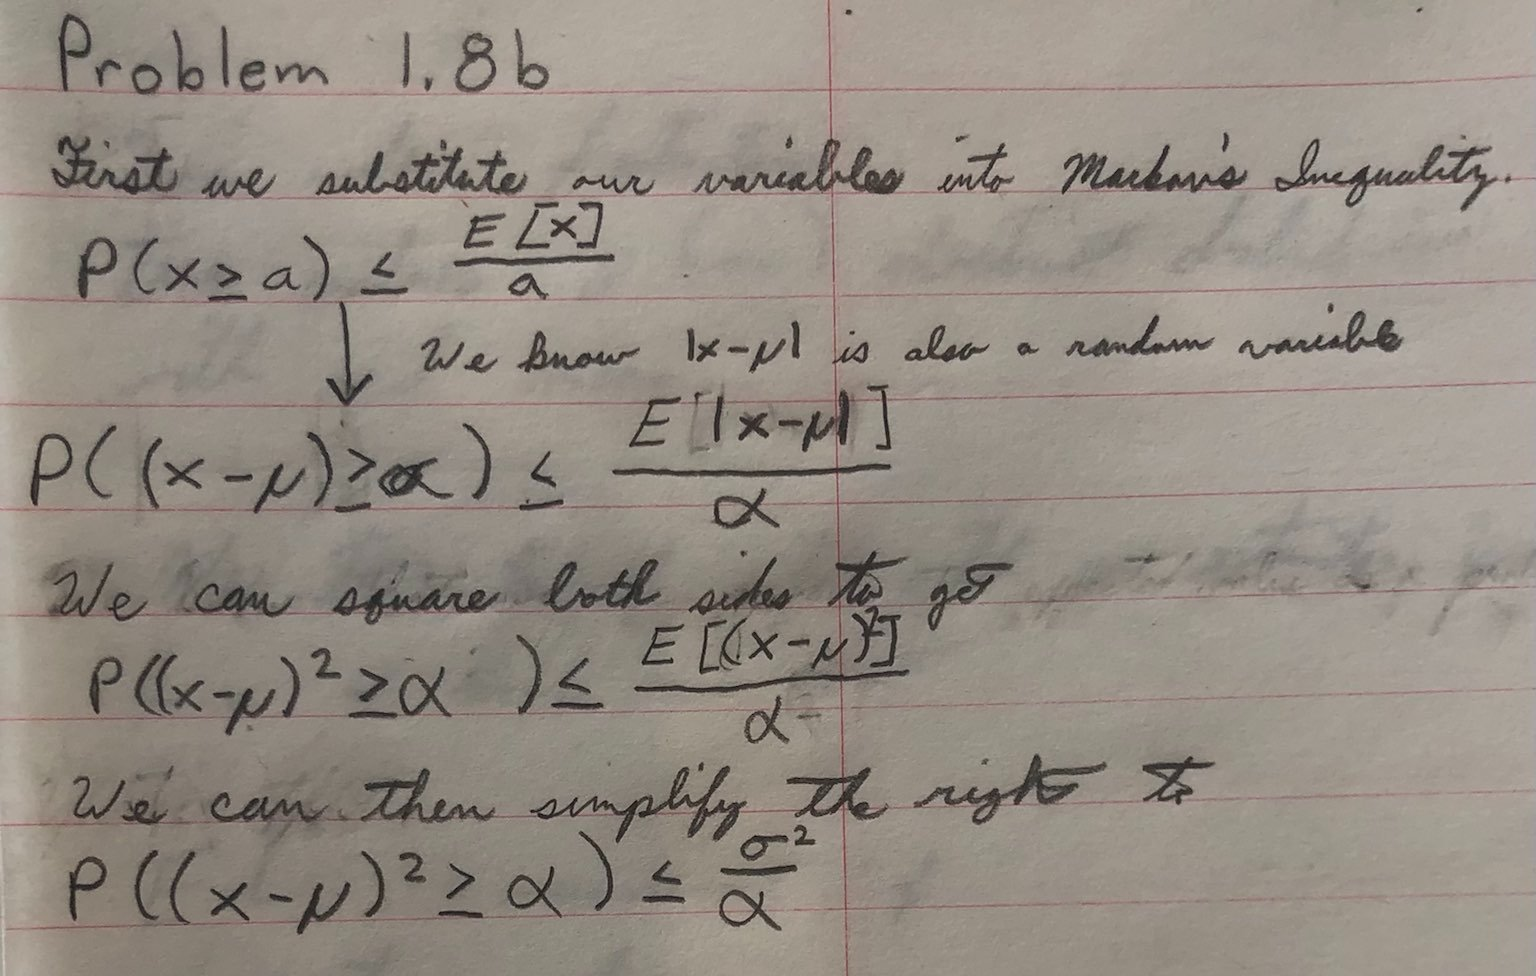 Problem 1.8b
First we substitute our variables into Markov's Inequality.
P(x ≥ a) ≤ E[x] / a
We know |x-μ| is also a random variable
P((x-μ) ≥ α) ≤ E[|x-μ|] / α
We can square both sides to get
P((x-μ)² ≥ α ) ≤ E[(x-μ)²] / α
We can then simplify the right to
P((x-μ)² ≥ α) ≤ σ² / α